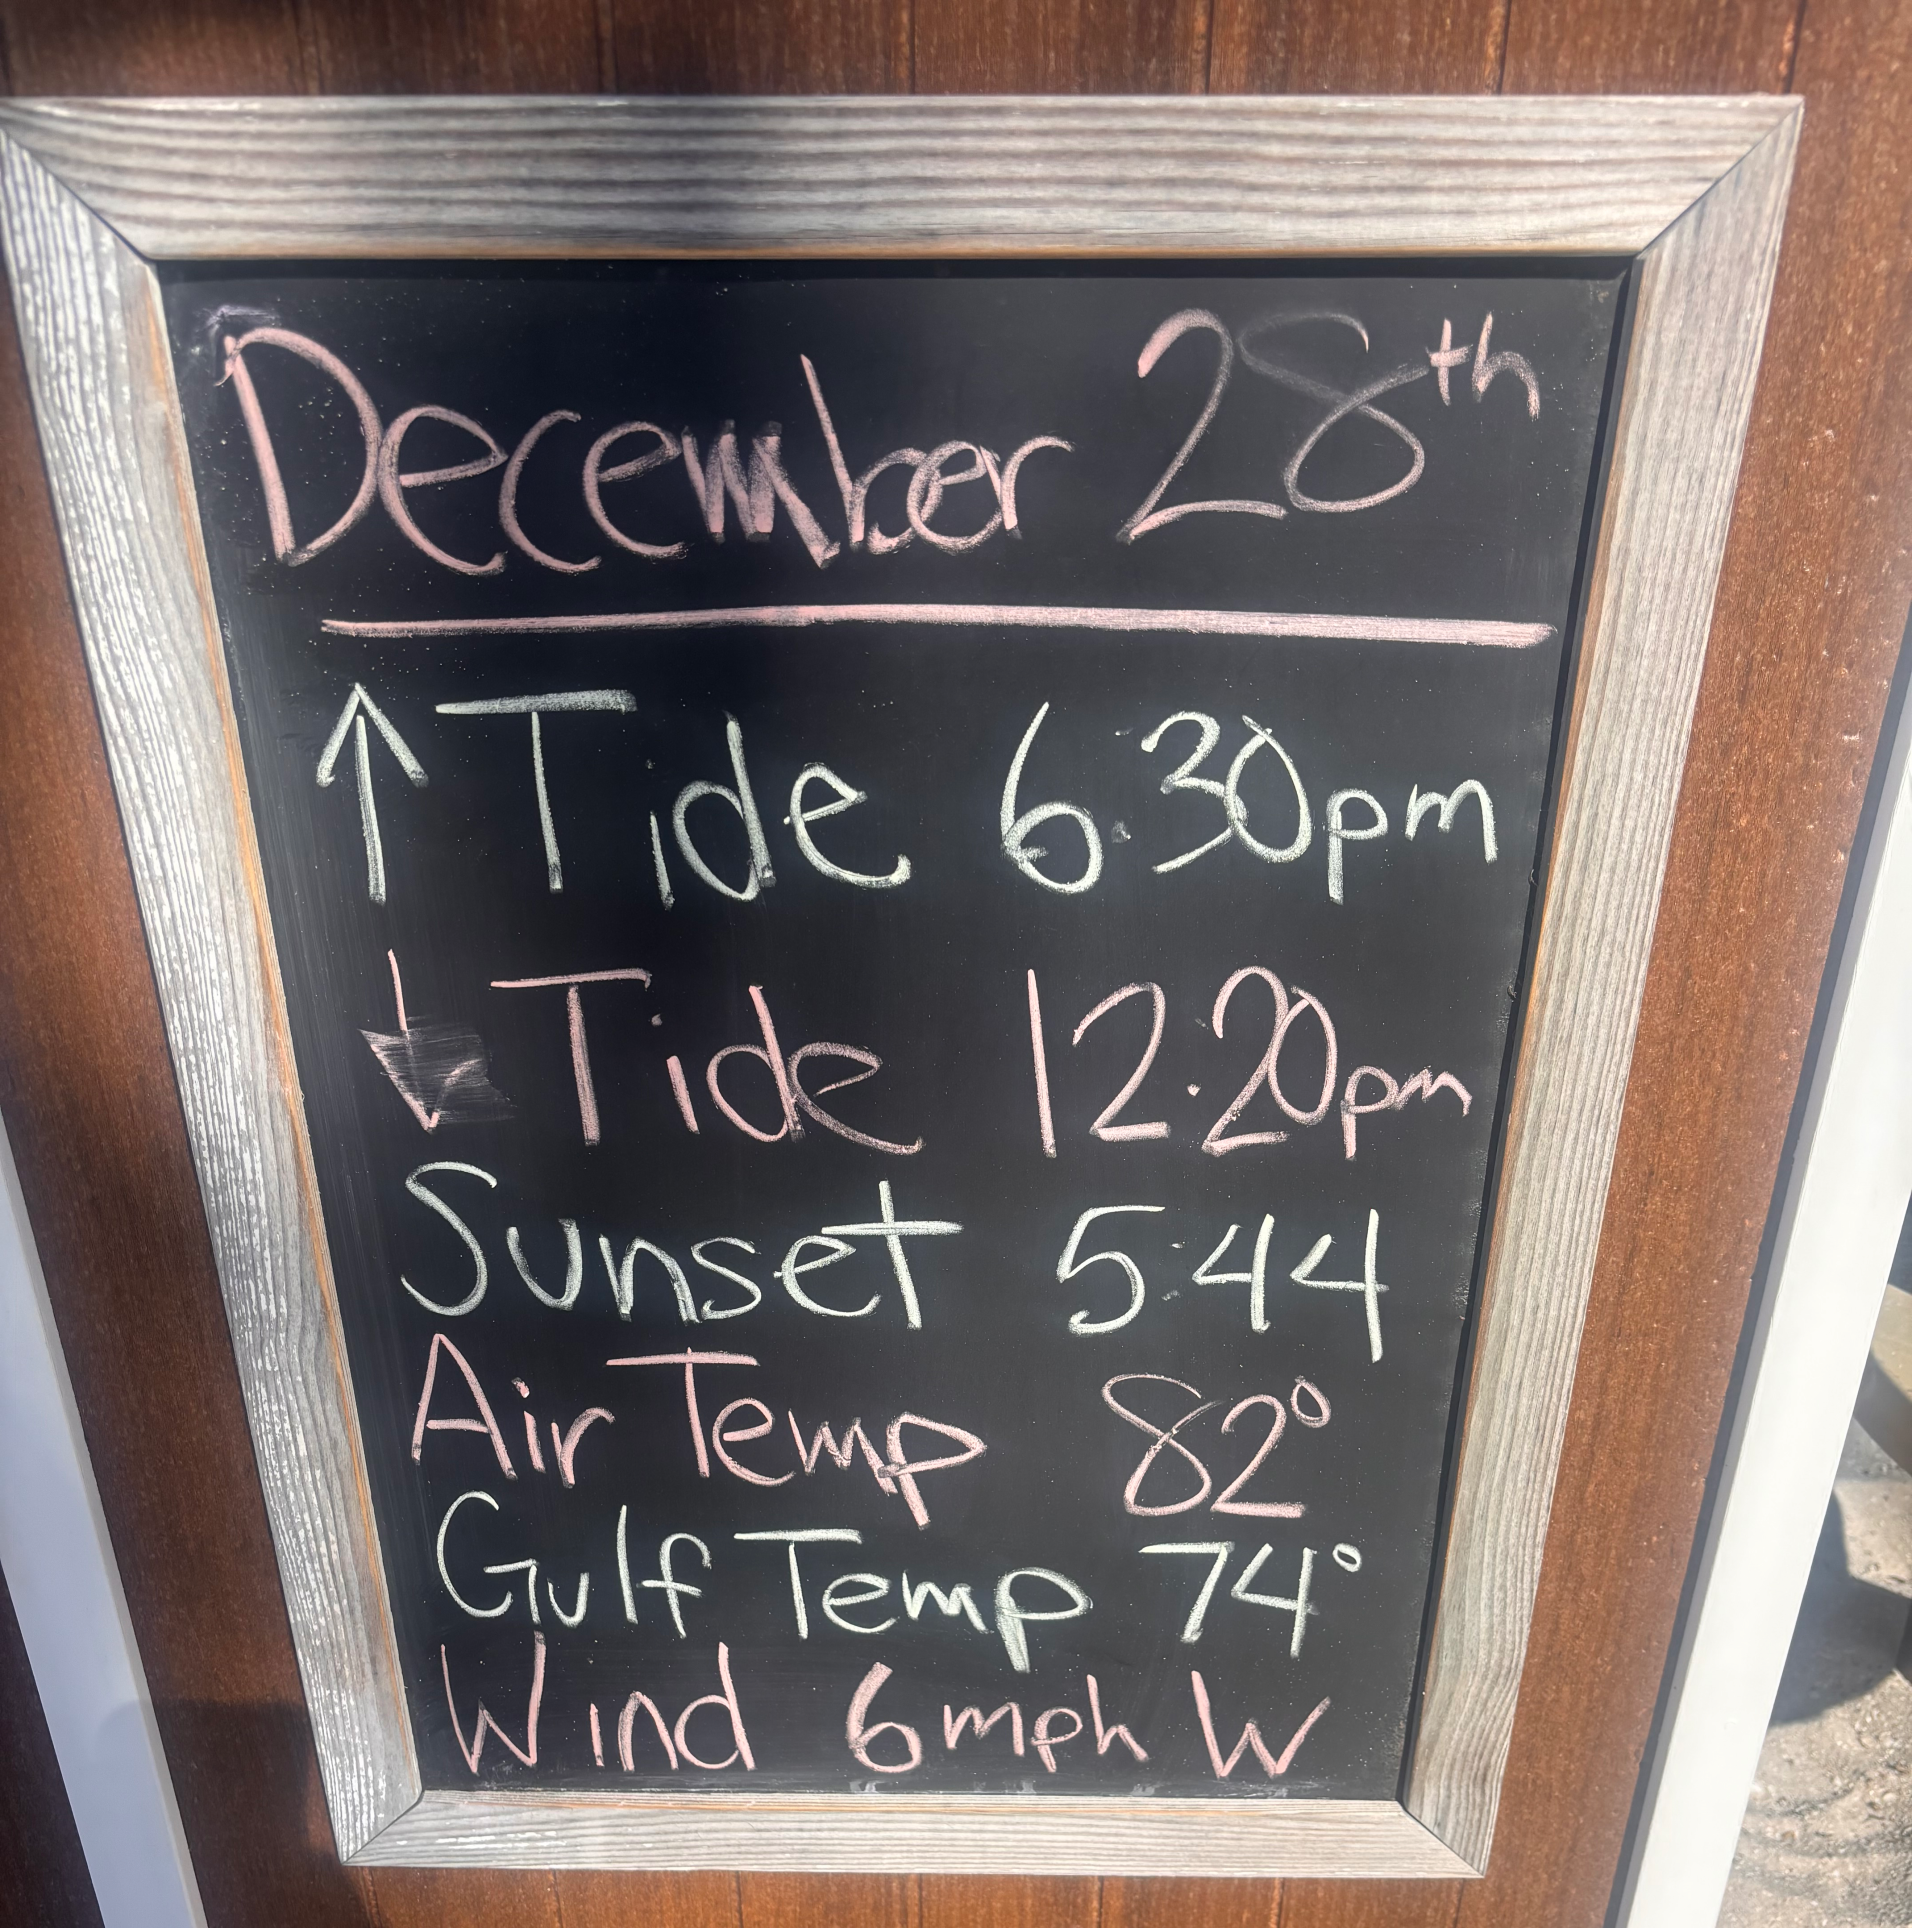 December 28th
↑ Tide 6:30pm
↓ Tide 12:20pm
Sunset 5:44
Air Temp 82°
Gulf Temp 74°
Wind 6mph W